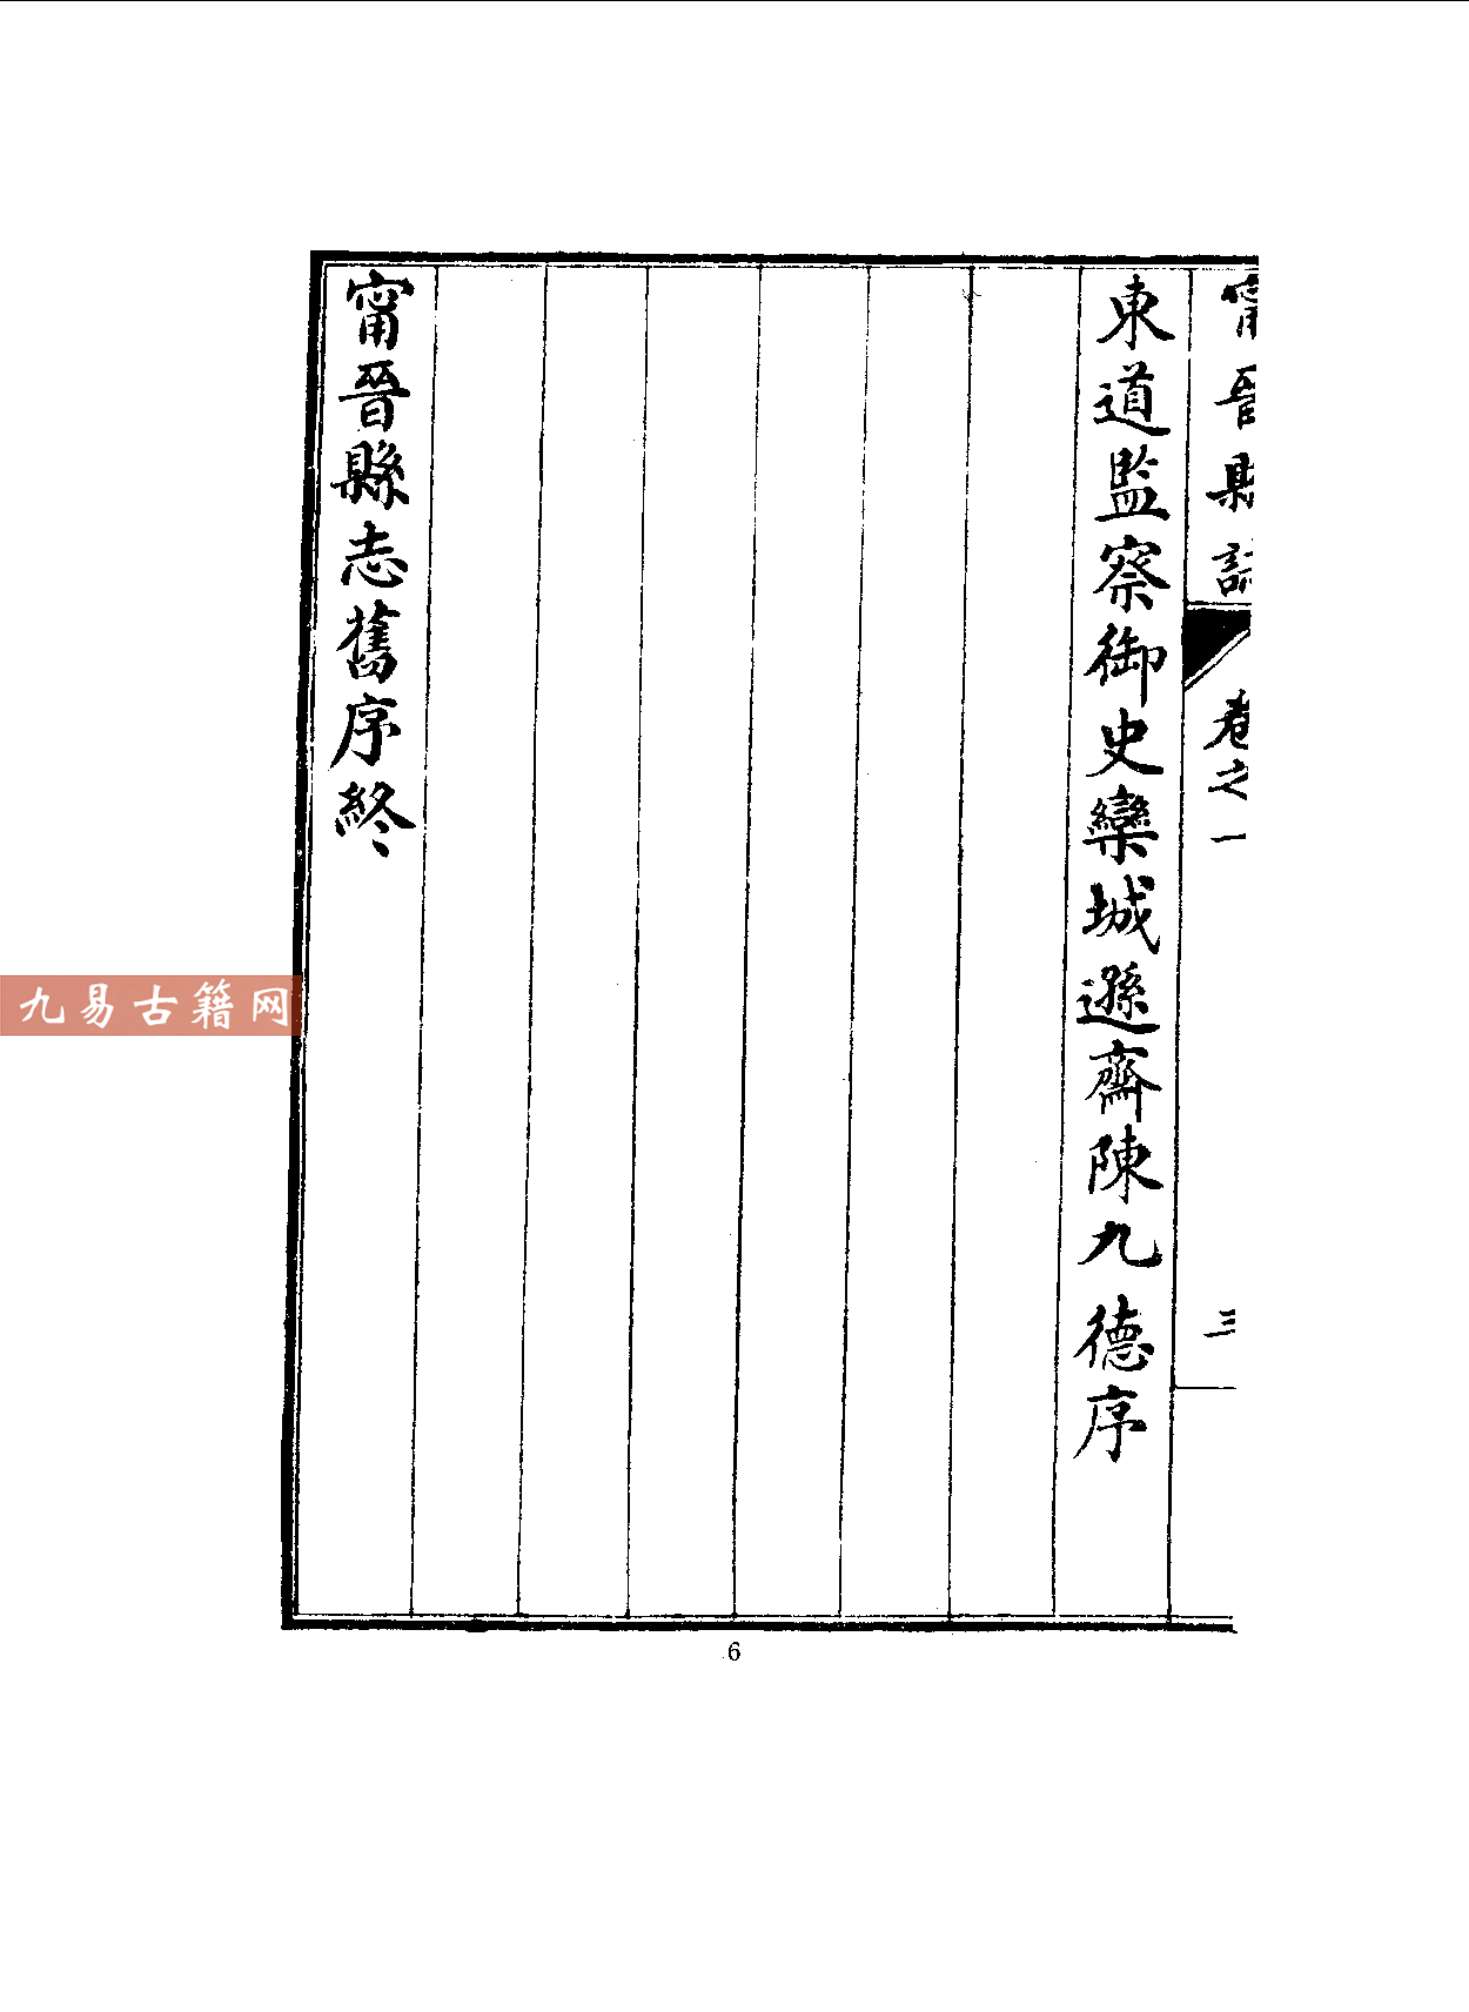 甯晉縣誌 卷之一 三
東道監察御史欒城遜齋陳九德序
甯晉縣志舊序終
九易古籍网
6